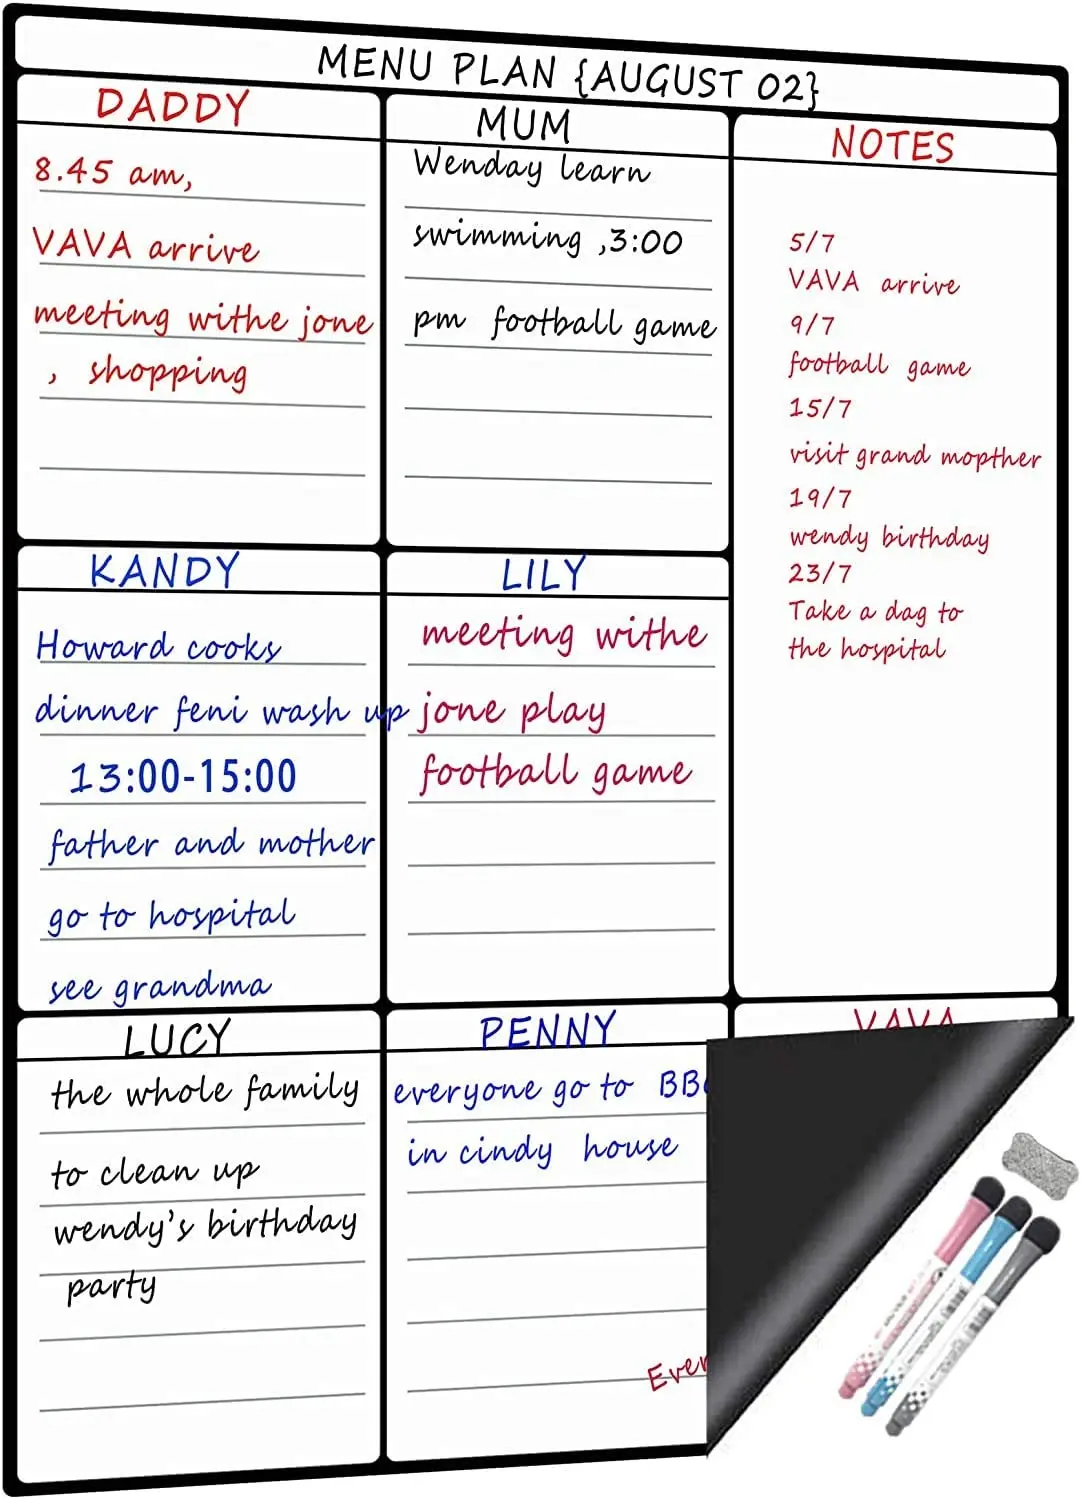 MENU PLAN {AUGUST 02}
DADDY
8.45 am,
VAVA arrive
meeting withe jone
, shopping
MUM
Wenday learn
swimming ,3:00
pm football game
NOTES
5/7
VAVA arrive
9/7
football game
15/7
visit grand mopther
19/7
wendy birthday
23/7
Take a dag to
the hospital
KANDY
Howard cooks
dinner feni wash up
13:00-15:00
father and mother
go to hospital
see grandma
LILY
meeting withe
jone play
football game
LUCY
the whole family
to clean up
wendy's birthday
party
PENNY
everyone go to
in cindy house
VAVA